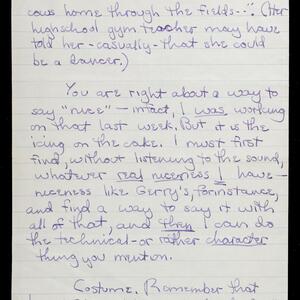 cows home through the fields-." (Her
highschool gym teacher may have
told her - casually - that she could
be a dancer.)
You are right about a way to
say "nice" - infact, I was working
on that last week. But it is the
icing on the cake. I must first
find, without listening to the sound,
whatever real niceness I have -
niceness like Gerry's, forinstance,
and find a way to say it with
all of that, and then I can do
the technical - or rather character
thing you mention.
Costume. Remember that